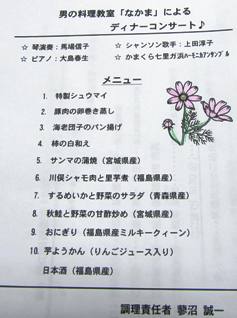 男の料理教室「なかま」による
ディナーコンサート♪
☆ 琴演奏：馬場信子　☆ シャンソン歌手：上田淳子
☆ ピアノ：大島春生　☆ かまくら七里ガ浜ハーモニカアンサンブル
メニュー
1. 特製シュウマイ
2. 豚肉の卵巻き蒸し
3. 海老団子のパン揚げ
4. 柿の白和え
5. サンマの蒲焼（宮城県産）
6. 川俣シャモ肉と里芋煮（福島県産）
7. するめいかと野菜のサラダ（青森県産）
8. 秋鮭と野菜の甘酢炒め（宮城県産）
9. おにぎり（福島県産ミルキークィーン）
10. 芋ようかん（りんごジュース入り）
日本酒（福島県産）
調理責任者 蓼沼 誠一